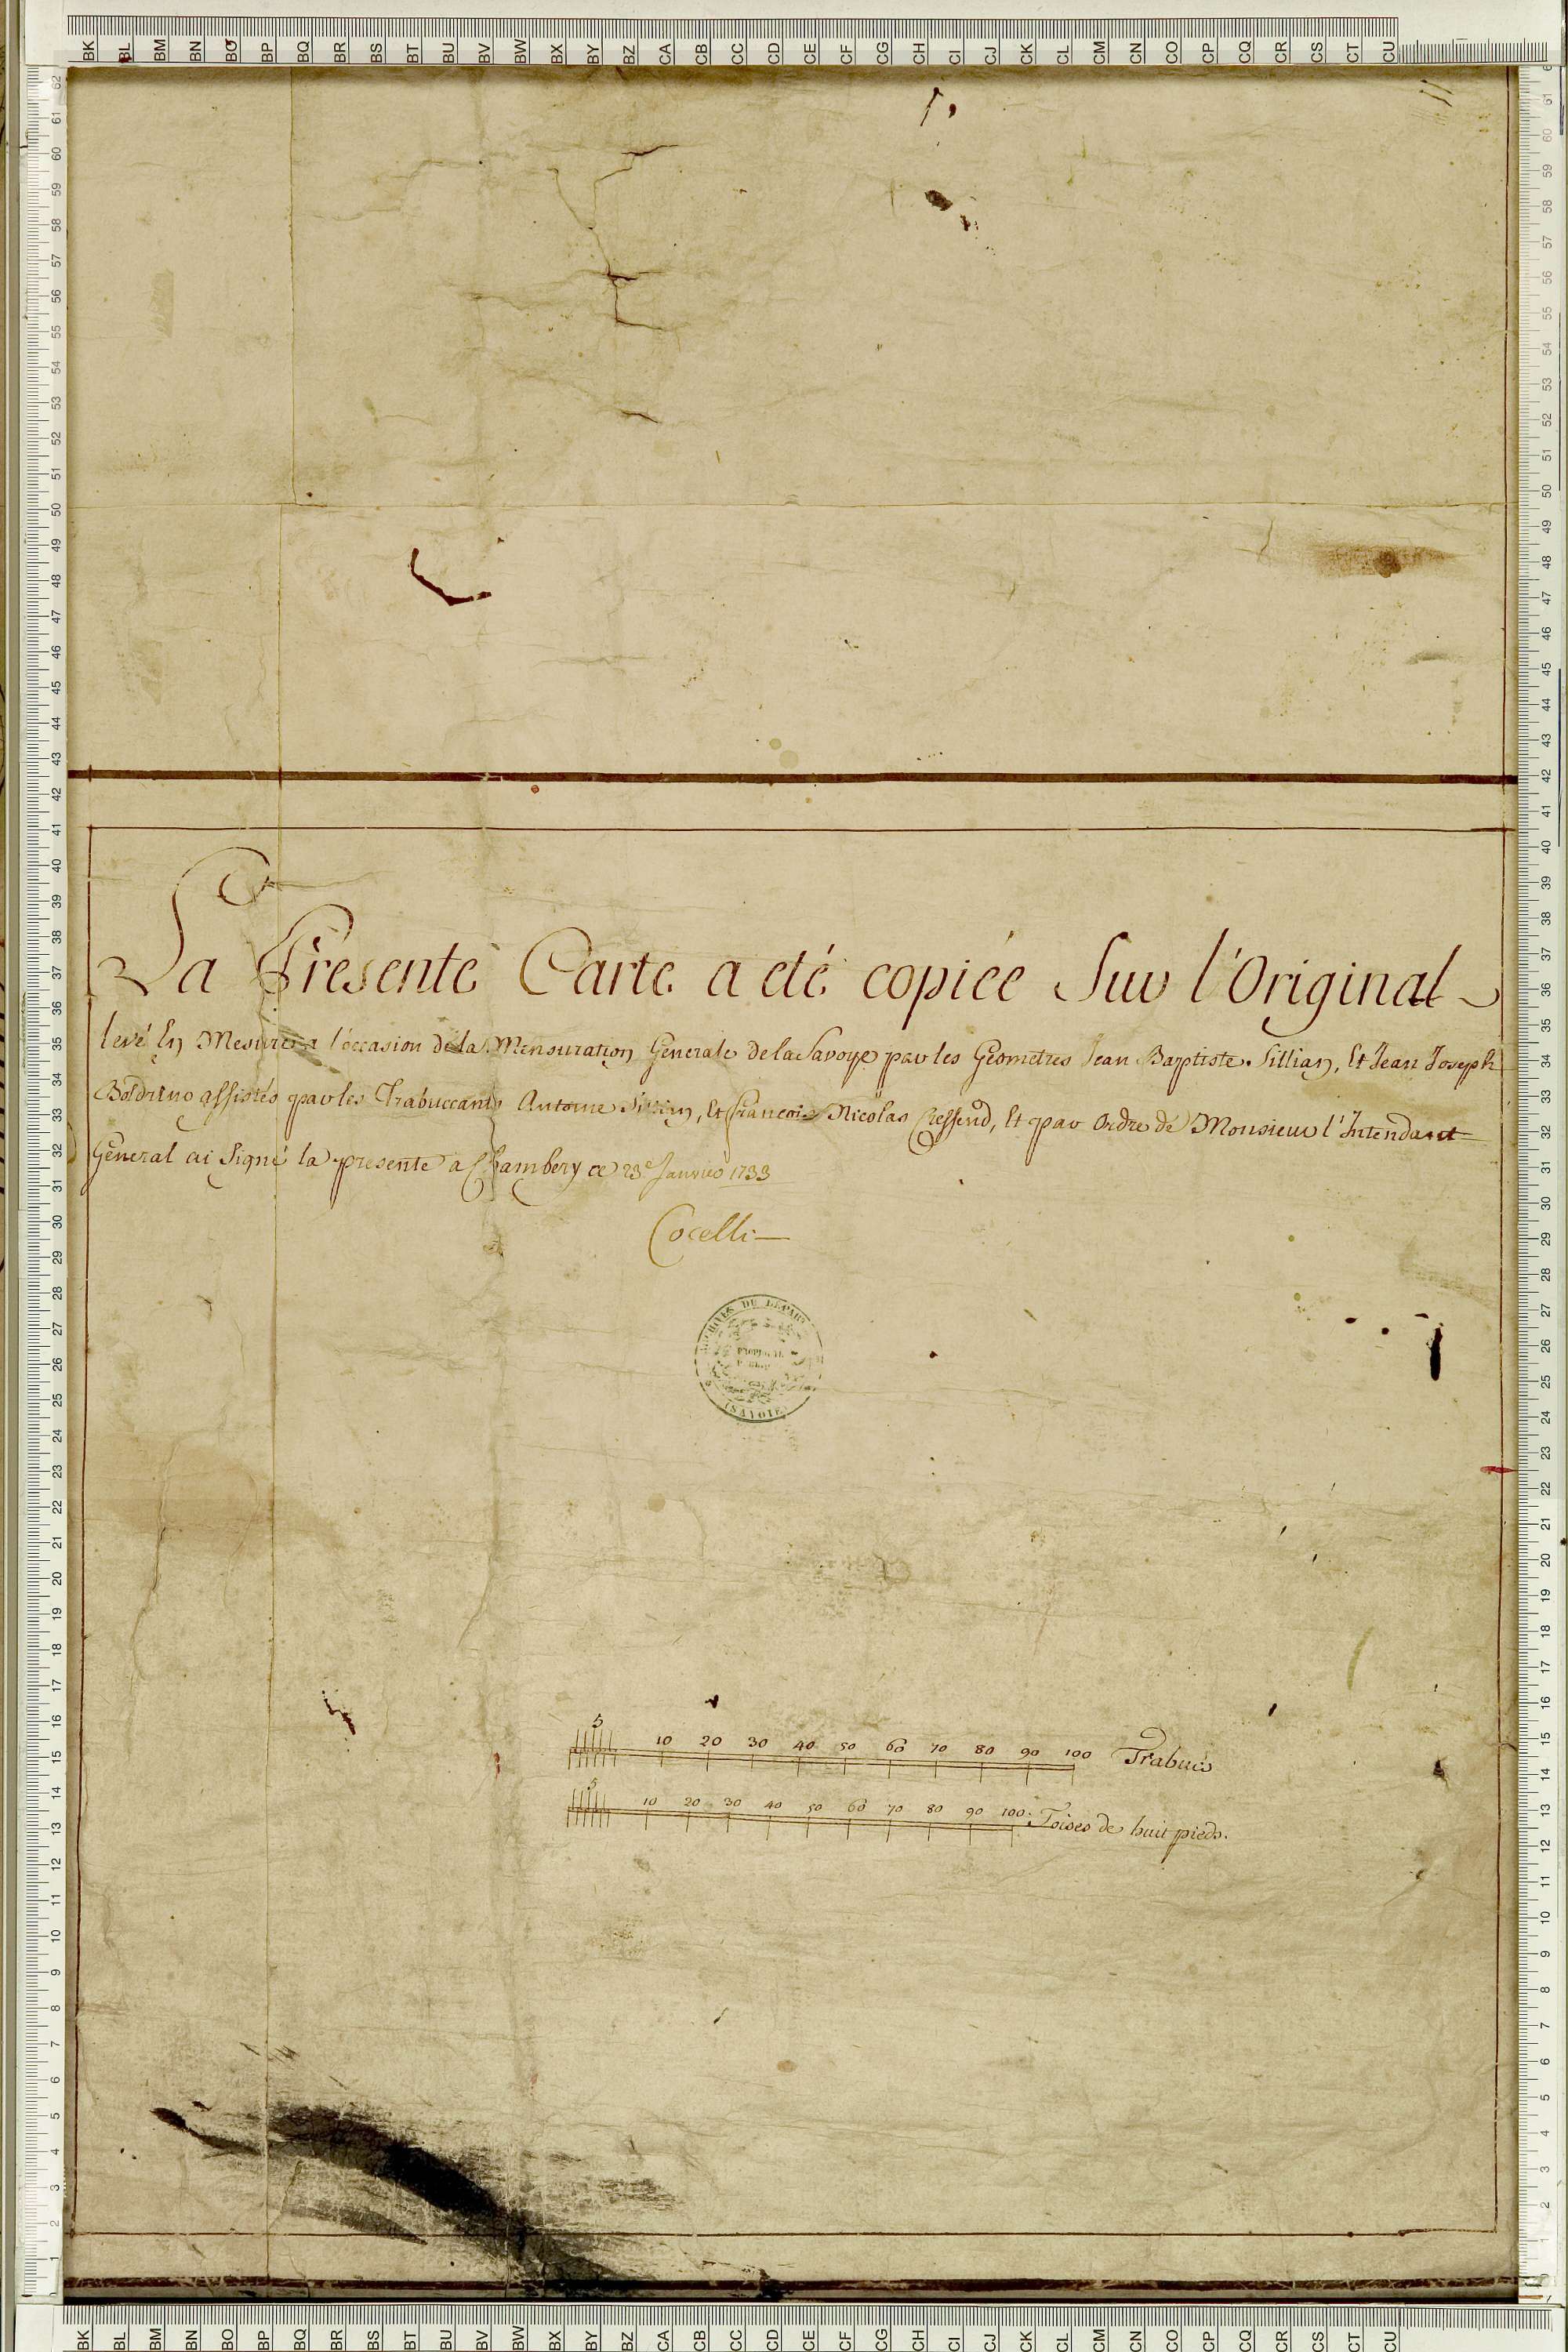 BK BL BM BN BO BP BQ BR BS BT BU BV BW BX BY BZ CA CB CC CD CE CF CG CH CI CJ CK CL CM CN CO CP CQ CR CS CT CU
La Présente Carte a eté copiée Sur l'Original
levé En Mesure a l'occasion de la Mensuration Generale de la Savoye par les Géometres Jean Baptiste Sillian, Et Jean Joseph
Boldrino assistés par les Trabuccants Antoine, Et françois Nicolas, Et par Ordre de Monsieur l'Intendant
General ai Signé la presente a Chambery ce 23e Janvier 1733
Cocelli
ARCHIVES DU DÉPART
(SAVOIE)
5 10 20 30 40 50 60 70 80 90 100 Trabucs
5 10 20 30 40 50 60 70 80 90 100. Toises de huit pieds.
BK BL BM BN BO BP BQ BR BS BT BU BV BW BX BY BZ CA CB CC CD CE CF CG CH CI CJ CK CL CM CN CO CP CQ CR CS CT CU